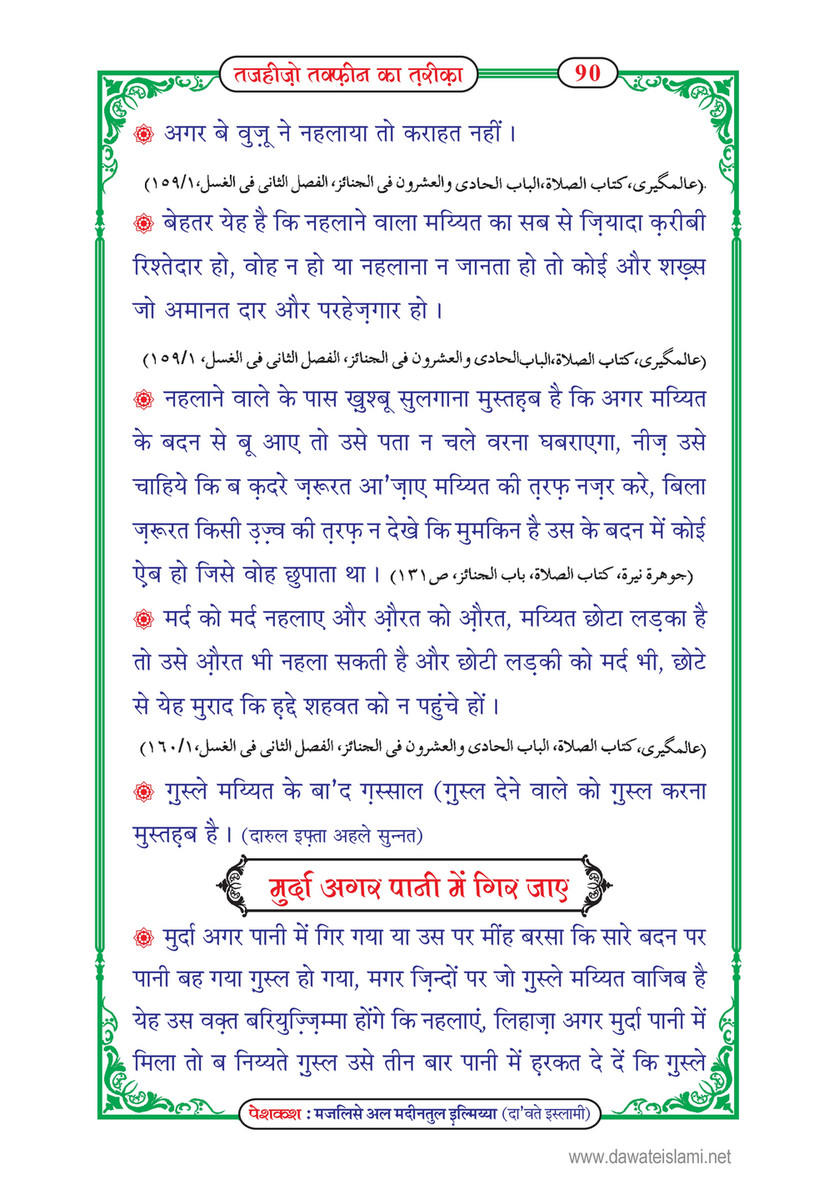 तजहीज़ो तक्फ़ीन का त़रीक़ा
90
अगर बे वुज़ू ने नहलाया तो कराहत नहीं ।
(عالمگیری، کتاب الصلاة،الباب الحادی والعشرون فی الجنائز، الفصل الثانی فی الغسل،١٥٩/١)
बेहतर येह है कि नहलाने वाला मय्यित का सब से ज़ियादा क़रीबी
रिश्तेदार हो, वोह न हो या नहलाना न जानता हो तो कोई और शख़्स
जो अमानत दार और परहेज़गार हो ।
(عالمگیری،کتاب الصلاة،الباب الحادی والعشرون فی الجنائز، الفصل الثانی فی الغسل، ١٥٩/١)
नहलाने वाले के पास ख़ुश्बू सुलगाना मुस्तह़ब है कि अगर मय्यित
के बदन से बू आए तो उसे पता न चले वरना घबराएगा, नीज़ उसे
चाहिये कि ब क़दरे ज़रूरत आ'ज़ाए मय्यित की त़रफ़ नज़र करे, बिला
ज़रूरत किसी उ़ज़्व की त़रफ़ न देखे कि मुमकिन है उस के बदन में कोई
ऐ़ब हो जिसे वोह छुपाता था । (جوهرة نيرة، کتاب الصلاة، باب الجنائز، ص١٣١)
मर्द को मर्द नहलाए और औ़रत को औ़रत, मय्यित छोटा लड़का है
तो उसे औ़रत भी नहला सकती है और छोटी लड़की को मर्द भी, छोटे
से येह मुराद कि ह़द्दे शहवत को न पहुंचे हों ।
(عالمگیری،کتاب الصلاة، الباب الحادی والعشرون فی الجنائز، الفصل الثانی فی الغسل،١٦٠/١)
ग़ुस्ले मय्यित के बा'द ग़स्साल (ग़ुस्ल देने वाले को ग़ुस्ल करना
मुस्तह़ब है । (दारुल इफ़्ता अहले सुन्नत)
मुर्दा अगर पानी में गिर जाए
मुर्दा अगर पानी में गिर गया या उस पर मींह बरसा कि सारे बदन पर
पानी बह गया ग़ुस्ल हो गया, मगर ज़िन्दों पर जो ग़ुस्ले मय्यित वाजिब है
येह उस वक़्त बरियुज़्ज़िम्मा होंगे कि नहलाएं, लिहाज़ा अगर मुर्दा पानी में
मिला तो ब निय्यते ग़ुस्ल उसे तीन बार पानी में ह़रकत दे दें कि ग़ुस्ले
पेशकश : मजलिसे अल मदीनतुल इ़ल्मिय्या (दा'वते इस्लामी)
www.dawateislami.net